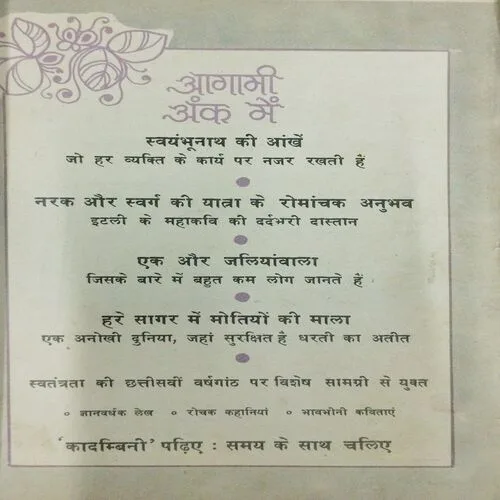 आगामी
अंक में
स्वयंभूनाथ की आंखें
जो हर व्यक्ति के कार्य पर नजर रखती हैं
नरक और स्वर्ग की यात्रा के रोमांचक अनुभव
इटली के महाकवि की दर्दभरी दास्तान
एक और जलियांवाला
जिसके बारे में बहुत कम लोग जानते हैं
हरे सागर में मोतियों की माला
एक अनोखी दुनिया, जहां सुरक्षित है धरती का अतीत
स्वतंत्रता की छत्तीसवीं वर्षगांठ पर विशेष सामग्री से युक्त
० ज्ञानवर्धक लेख ० रोचक कहानियां ० भावभीनी कविताएं
'कादम्बिनी' पढ़िए : समय के साथ चलिए